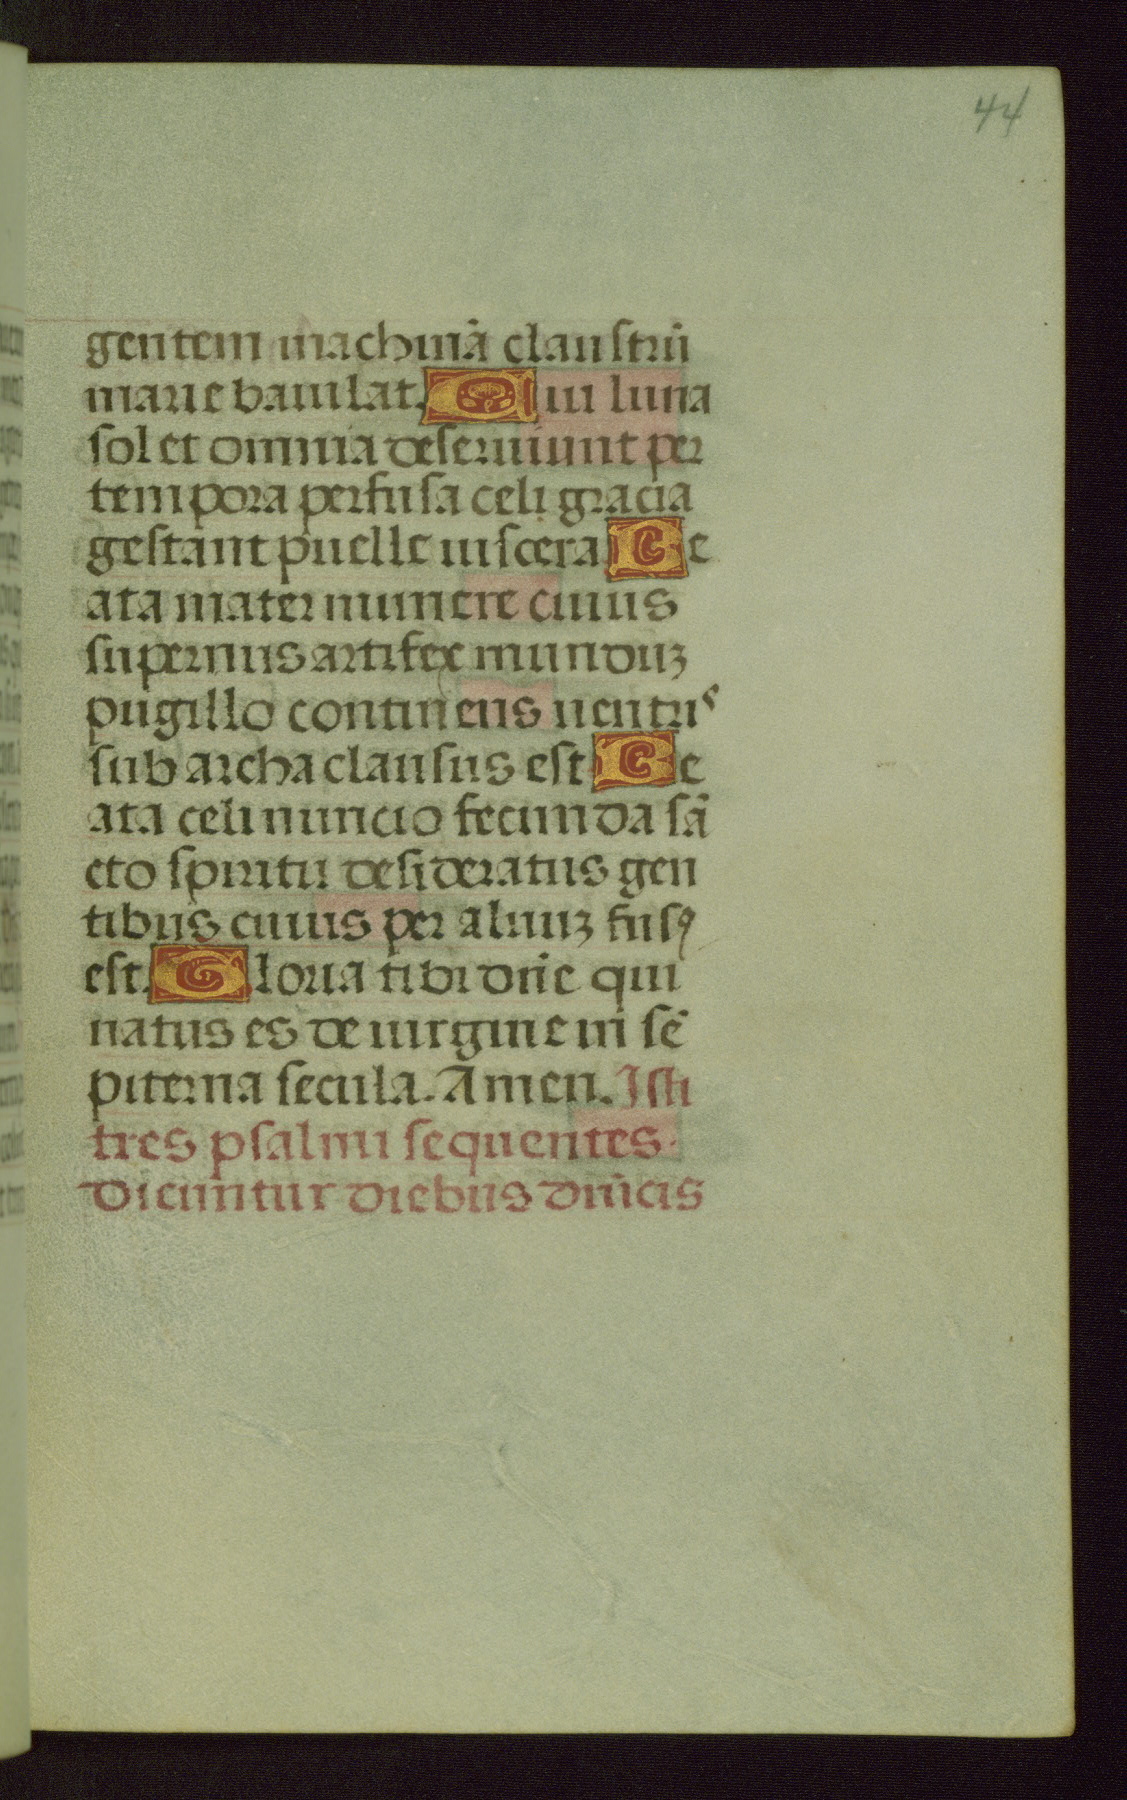 44
gentem machinā claustrū
marie baiulat. Cui luna
sol et omnia deseruiunt per
tempora perfusa celi gracia
gestant puelle uiscera Be
ata mater munere cuius
supernus artifex munduz
pugillo continens uentris
sub archa clausus est Be
ata celi nuncio fecunda sā
cto spiritu desideratus gen
tibus cuius per aluuz fusꝯ
est. Gloria tibi dn̄e qui
natus es de uirgine in sē
piterna secula. Amen. Isti
tres psalmi sequentes.
dicuntur diebus dn̄icis